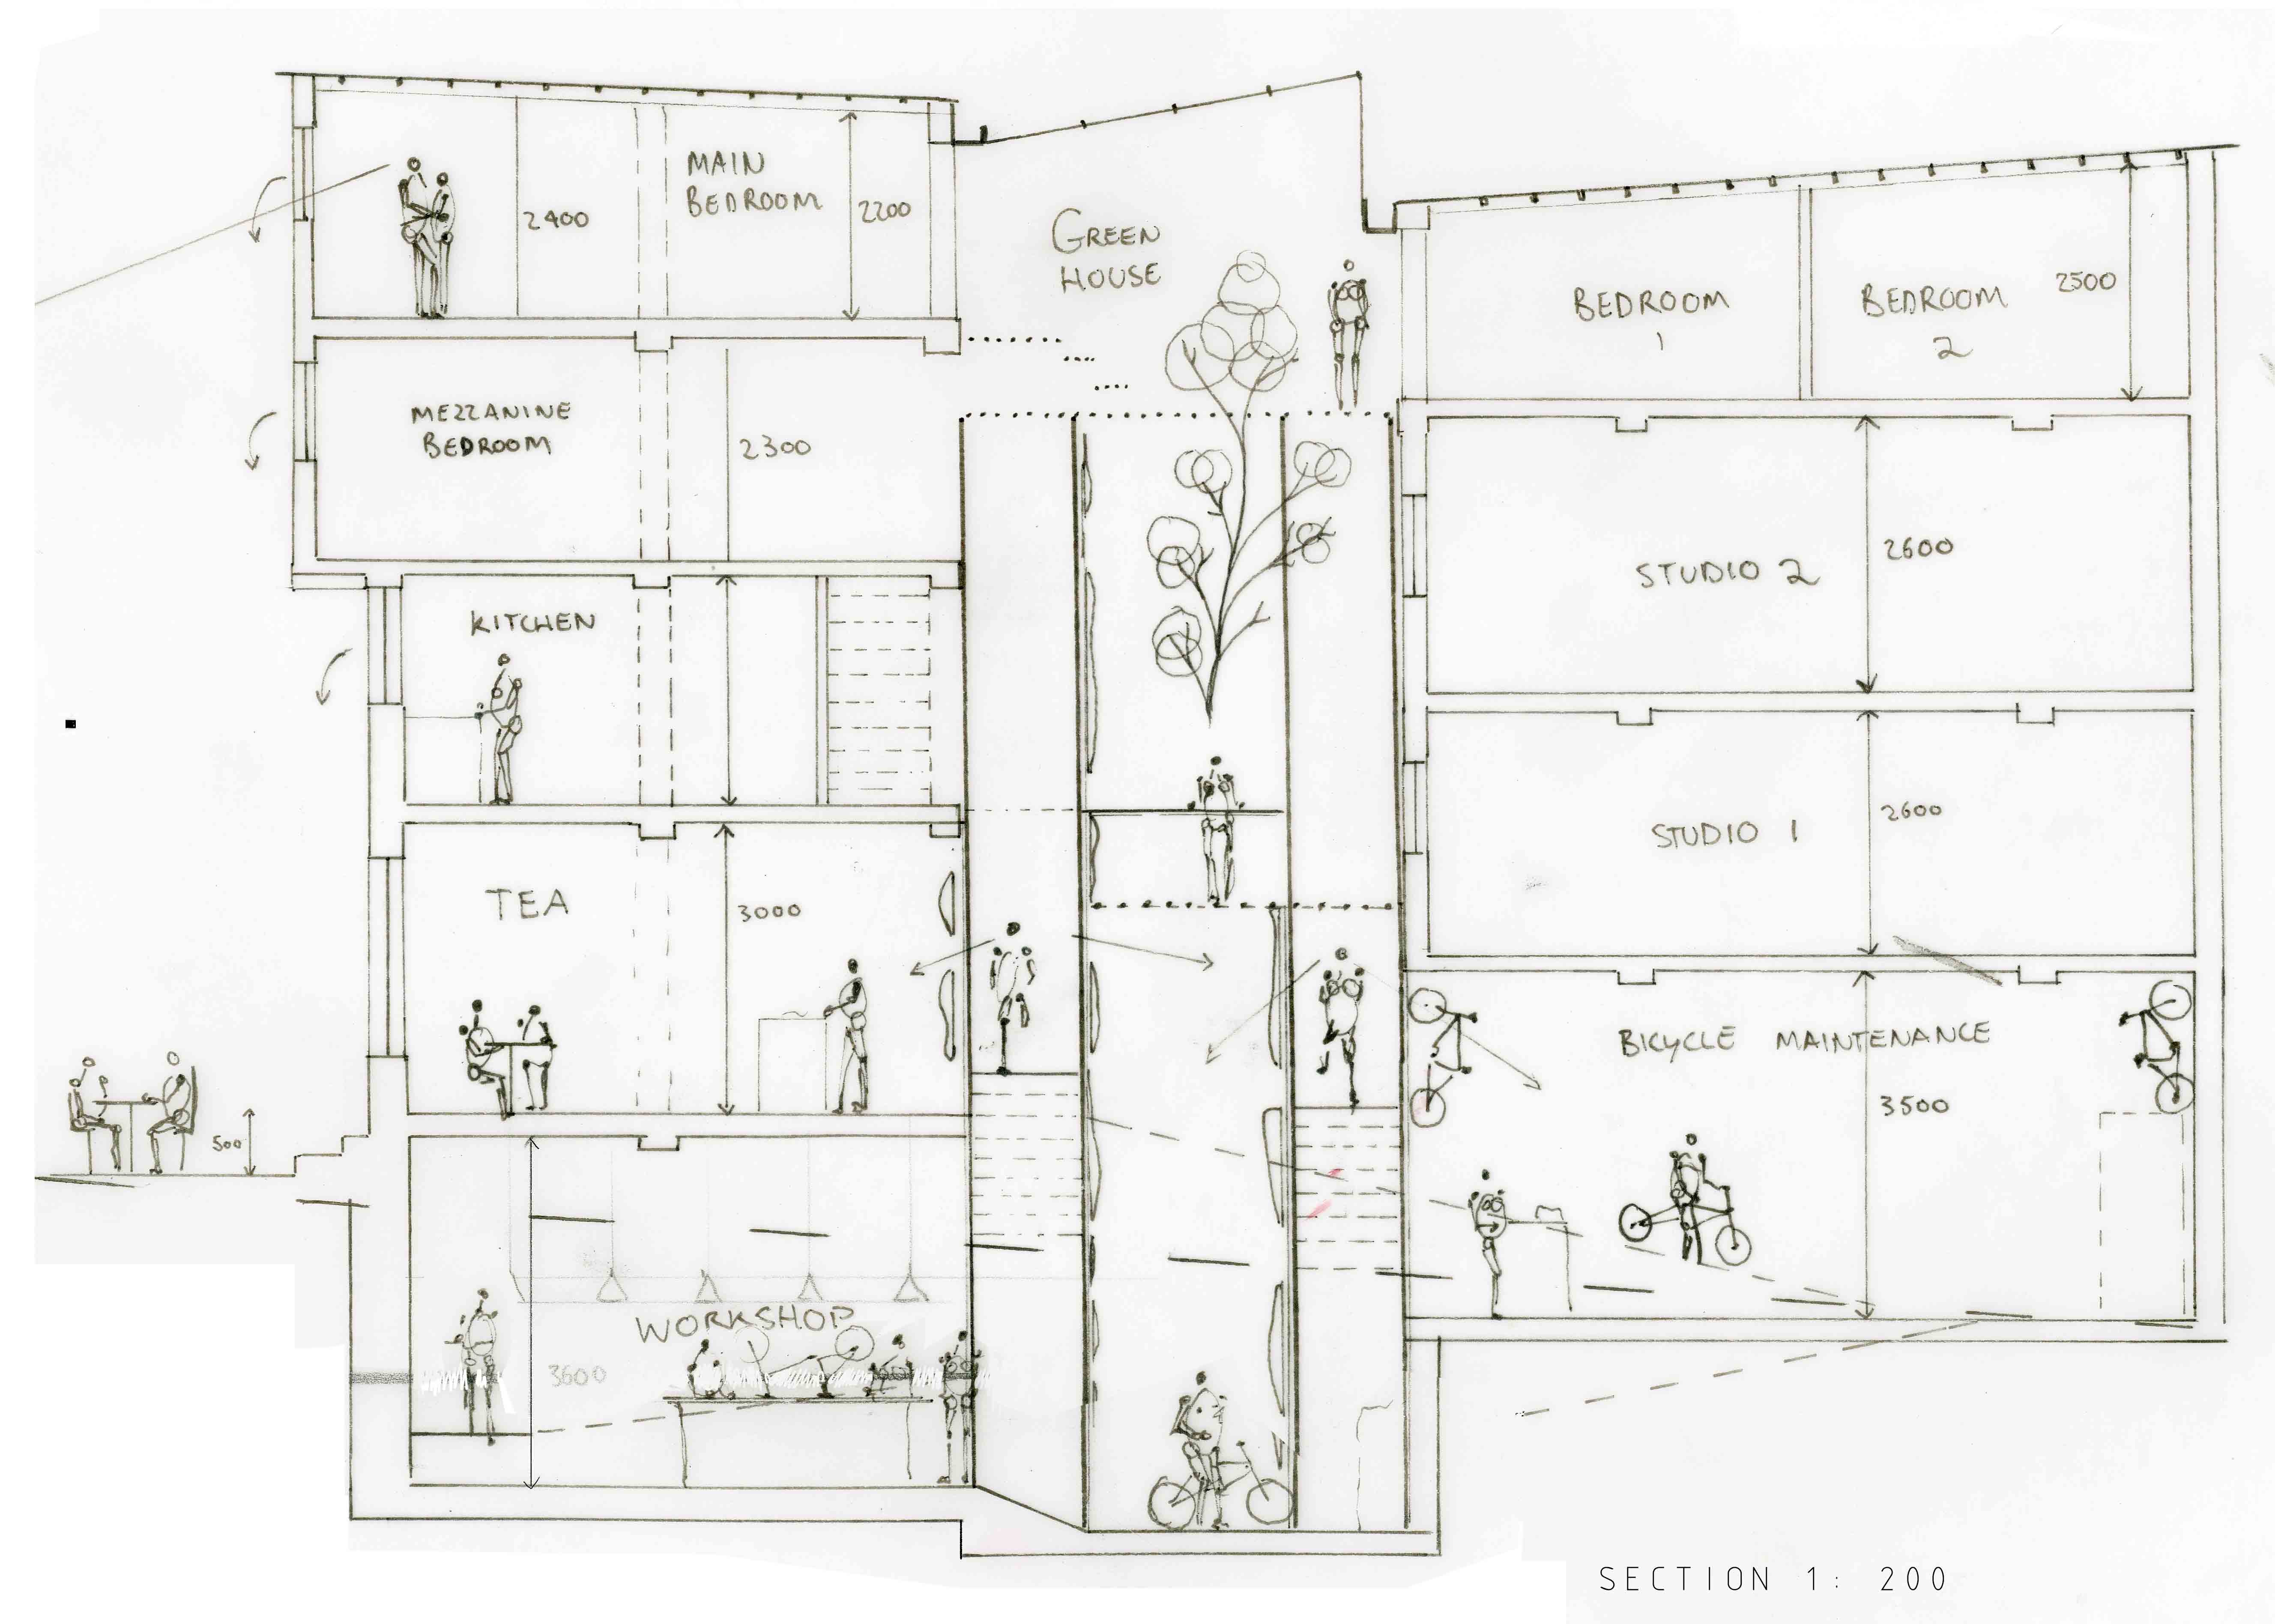 MAIN
BEDROOM
2400
2200
GREEN
HOUSE
BEDROOM
1
BEDROOM
2
2500
MEZZANINE
BEDROOM
2300
STUDIO 2
2600
KITCHEN
TEA
3000
STUDIO 1
2600
BICYCLE MAINTENANCE
3500
500
WORKSHOP
3600
SECTION 1: 200